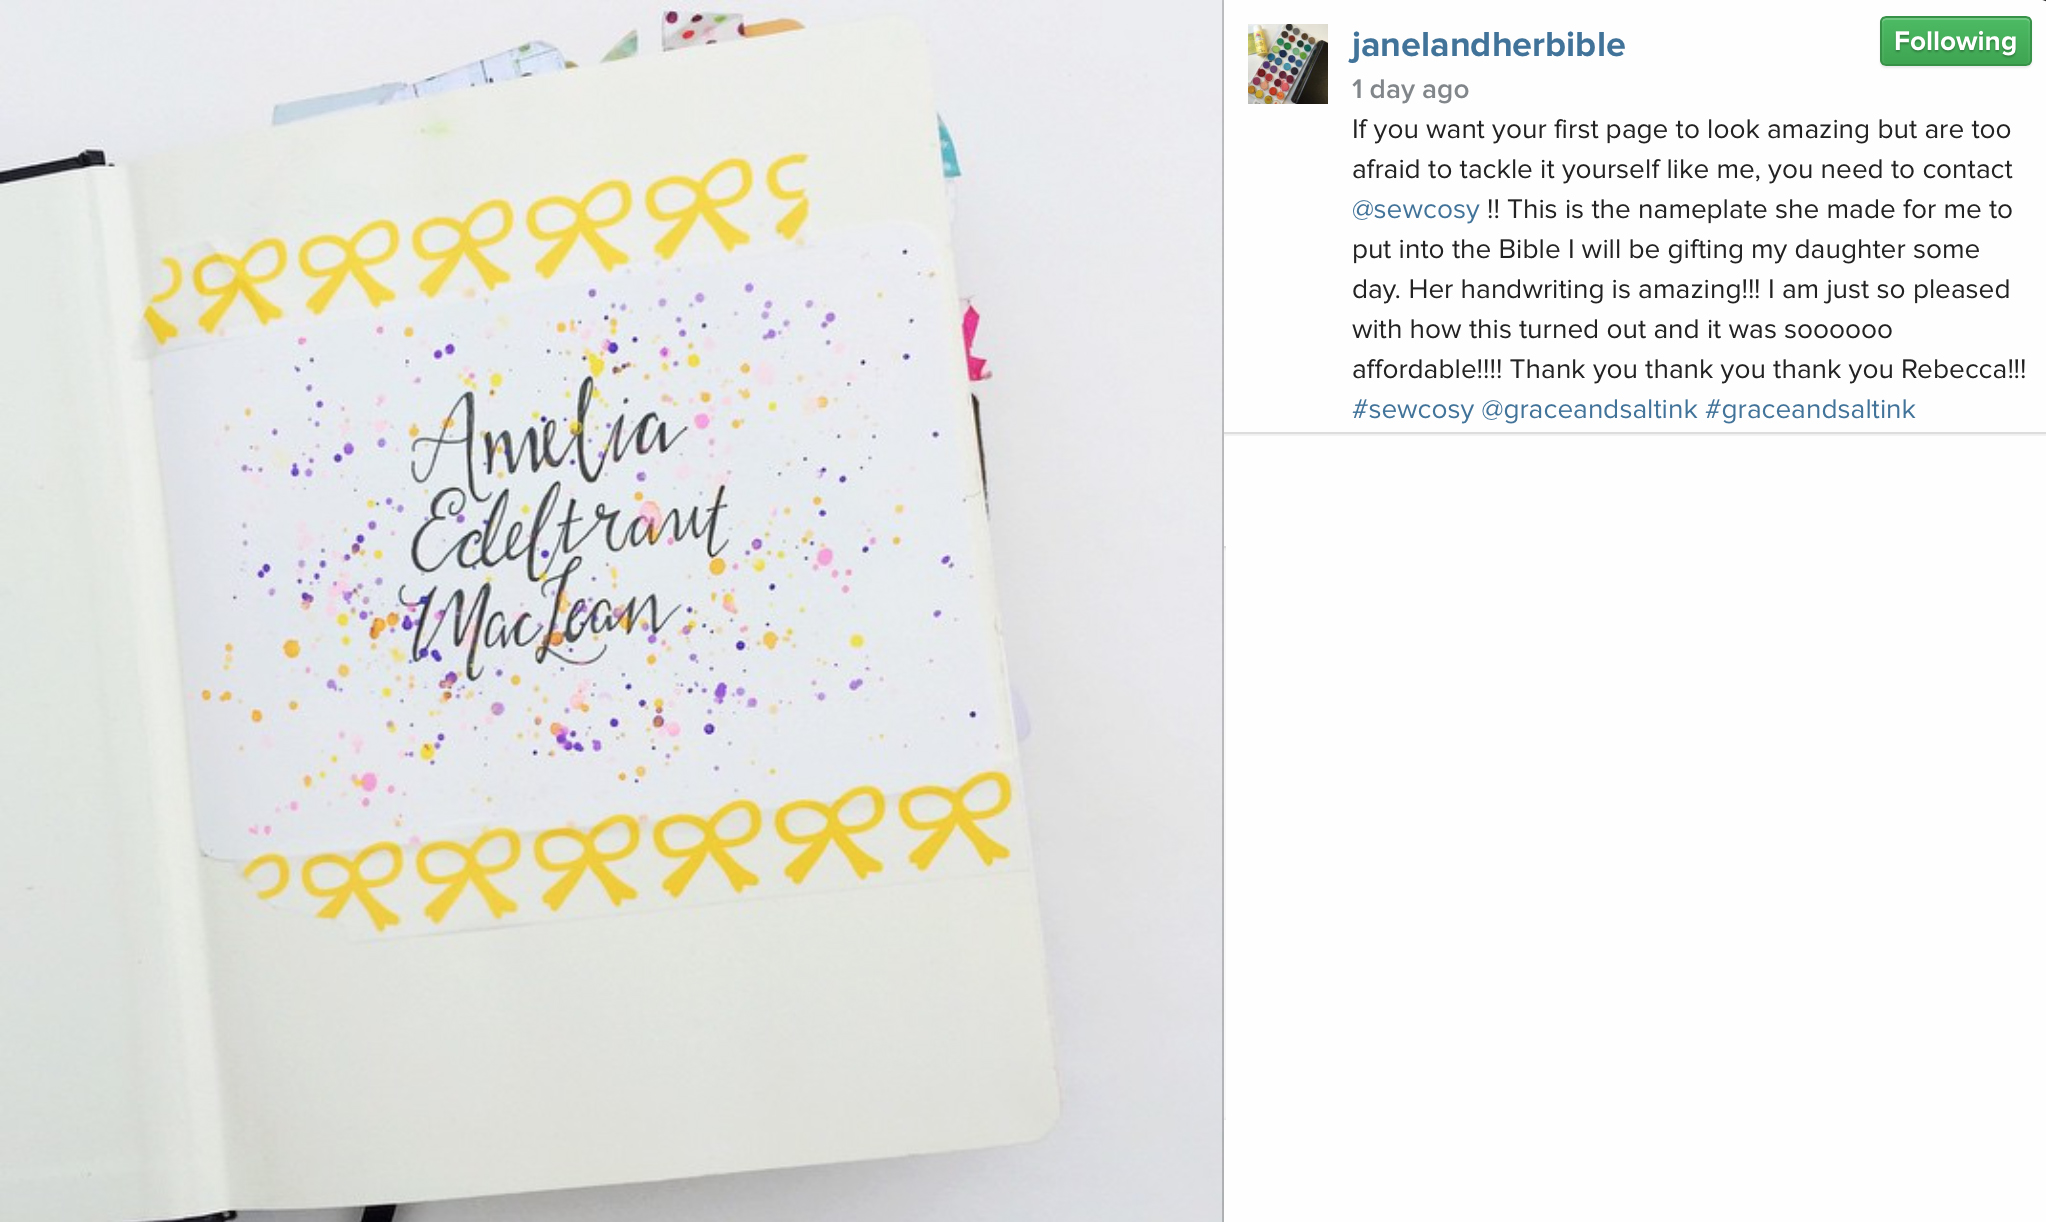 Amelia
Edeltraut
MacLean
janelandherbible
Following
1 day ago
If you want your first page to look amazing but are too
afraid to tackle it yourself like me, you need to contact
@sewcosy !! This is the nameplate she made for me to
put into the Bible I will be gifting my daughter some
day. Her handwriting is amazing!!! I am just so pleased
with how this turned out and it was soooooo
affordable!!!! Thank you thank you thank you Rebecca!!!
#sewcosy @graceandsaltink #graceandsaltink